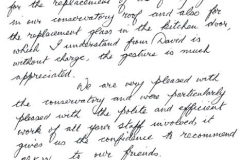 for the replacement
in our conservatory roof and also for
the replacement glass in the kitchen door,
which I understand from David is
without charge, the gesture is much
appreciated.
We are very pleased with
the conservatory and were particularly
pleased with the polite and efficient
work of all your staff involved, it
gives us the confidence to recommend
to our friends.